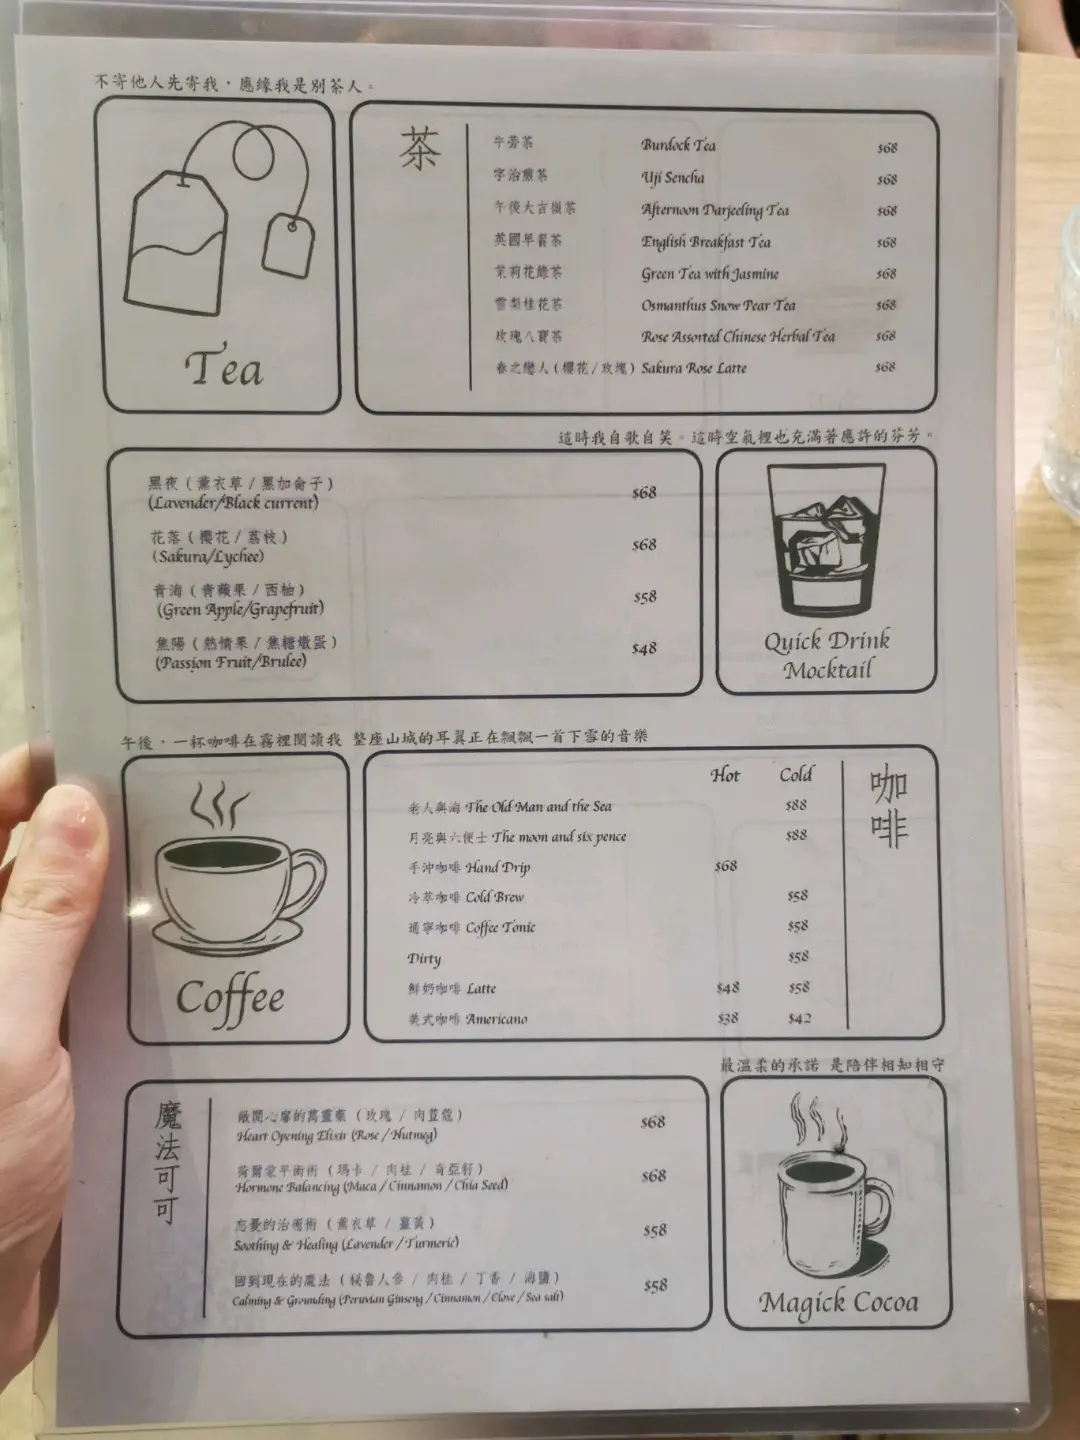 不寄他人先寄我，應緣我是別茶人。
Tea
茶
牛蒡茶 Burdock Tea $68
宇治煎茶 Uji Sencha $68
午後大吉嶺茶 Afternoon Darjeeling Tea $68
英國早餐茶 English Breakfast Tea $68
茉莉花綠茶 Green Tea with Jasmine $68
雪梨桂花茶 Osmanthus Snow Pear Tea $68
玫瑰八寶茶 Rose Assorted Chinese Herbal Tea $68
春之戀人（櫻花/玫瑰）Sakura Rose Latte $68
這時我自歌自笑。這時空氣裡也充滿著應許的芬芳。
黑夜（薰衣草 / 黑加侖子）
(Lavender/Black current) $68
花落（櫻花 / 荔枝）
(Sakura/Lychee) $68
青海（青蘋果 / 西柚）
(Green Apple/Grapefruit) $58
焦陽（熱情果 / 焦糖燉蛋）
(Passion Fruit/Brulee) $48
Quick Drink
Mocktail
午後，一杯咖啡在霧裡閱讀我 整座山城的耳翼正在飄飄一首下雪的音樂
Coffee
Hot Cold
老人與海 The Old Man and the Sea $88
月亮與六便士 The moon and six pence $88
手沖咖啡 Hand Drip $68
冷萃咖啡 Cold Brew $58
通寧咖啡 Coffee Tonic $58
Dirty $58
鮮奶咖啡 Latte $48 $58
美式咖啡 Americano $38 $42
咖啡
最溫柔的承諾 是陪伴相知相守
魔法可可
敞開心扉的萬靈藥（玫瑰 / 肉荳蔻）
Heart Opening Elixir (Rose / Nutmeg) $68
荷爾蒙平衡術（瑪卡 / 肉桂 / 奇亞籽）
Hormone Balancing (Maca / Cinnamon / Chia Seed) $68
忘憂的治癒術（薰衣草 / 薑黃）
Soothing & Healing (Lavender / Turmeric) $58
回到現在的魔法（秘魯人參 / 肉桂 / 丁香 / 海鹽）
Calming & Grounding (Peruvian Ginseng / Cinnamon / Clove / Sea salt) $58
Magick Cocoa